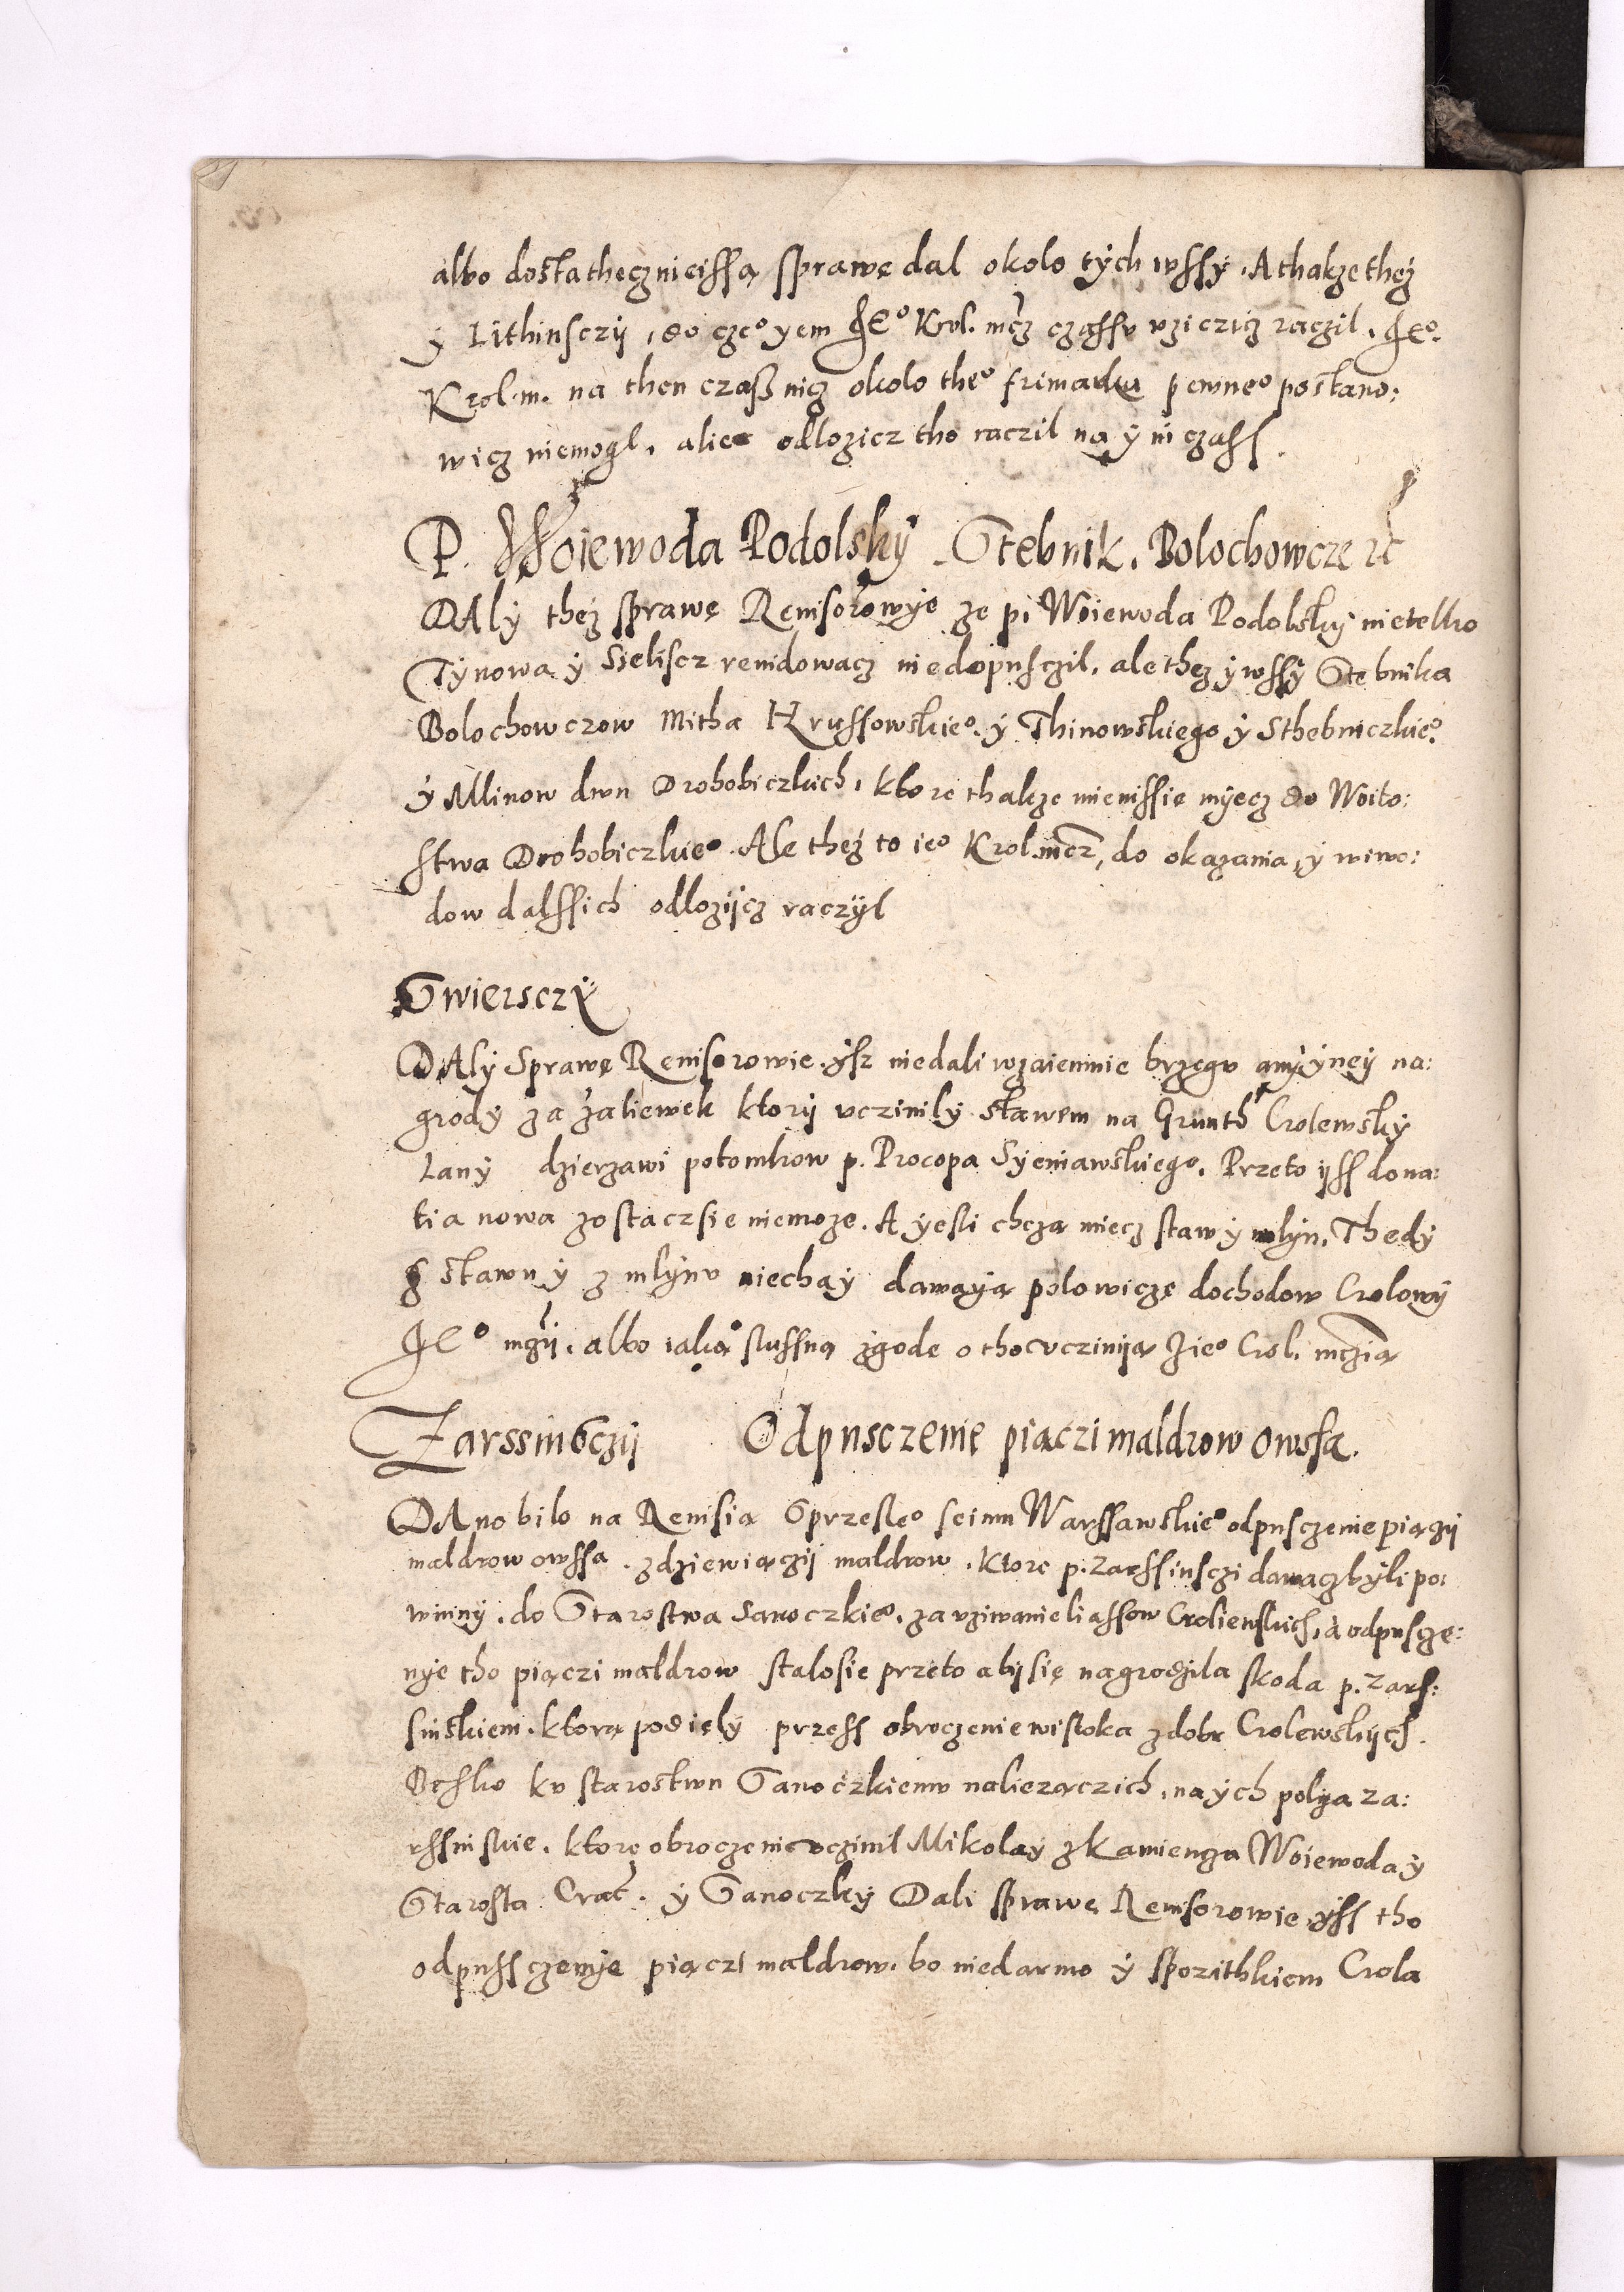 albo dostatheczniejssą sprawę dal okolo tÿch wssÿ. A thakze theż
ÿ Lithinsczÿ, do cze° yem Je° Krol. mcz czassu uziczicz raczil. Je°.
Krol. m. na then czaß nicz okolo the° frimarku pewne° postano:
wicz niemogl, alie odlozicz tho raczil na ÿn czass.
P. Woiewoda Podolskÿ Stebnik. Bolochowcze etc
DAlÿ theż sprawę Revisorowÿe ze p. Woiewoda Podolskÿ nietelko
Tÿnowa ÿ Sieliscz revidowacz niedopusczil, ale thez ÿ wssÿ Stebnika
Bolochowczow Mitha Krussowskie°. ÿ Thinowskiego ÿ Sthebniczkie°.
ÿ Mlinow dwu Drohobiczkich, ktore thakze mienissie mÿecz do Woito:
stwa Drohobiczkie°. Ale theż to ie° Krol. mcz, do okazania, ÿ wiwo:
dow dalssich odlozÿcz raczÿl
Swiersczÿ
DAlÿ Sprawę Revisorowie. ÿsz niedali wzaiemnie brzegu anÿ ÿneÿ na:
grodÿ za zaliewek ktorÿ vczinilÿ stawem na Grunth Crolewskÿ
Lanÿ dzierzawi potomkow p. Procopa Sÿeniawskiego. Przeto ÿss dona:
tia nowa zostacz sie niemoze. A ÿesli chczą miecz staw ÿ mlÿn, Thedÿ
z stawu ÿ z mlÿnu niechaÿ dawaÿą polowiczę dochodow Crolowÿ
Je° mczÿ. albo iaką slussną zgode o tho vczinÿą z ie° Crol. mczią
Zarssinsczÿ Odpusczenie piączi maldrow owssa.
DAno bilo na Revisią Sprzesle° seimu Warssawskie° odpusczenie piączÿ
maldrow owssa. z dziewiączÿ maldrow. Ktore p. Zarssinsczi dawacz bÿli po:
winnÿ. do Starostwa Sanoczkie°. za vziwanie liassow Croliewskich, à odpuscze:
nÿe tho piączi maldrow stalosie przeto abÿ się nagrodzila skoda p. Zars:
sinskiem. ktorą podięlÿ przess obroczenie wisloka z dobr Crolewskÿch.
Bessko ku starostwu Sanoczkiemu naliezączich, na ÿch polÿa Za:
rssinskie. ktorę obroczenie vczinil Mikolaÿ z Kamiencza Woiewoda ÿ
Starosta Crac. ÿ Sanoczkÿ Dali sprawę Revisorowie, ÿss tho
odpussczenÿe piączi maldrow. bo niedarmo ÿ spozithkiem Crola